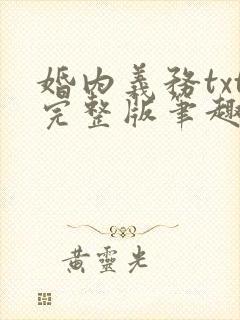 婚内義務txt
完整版筆趣
黃靈光